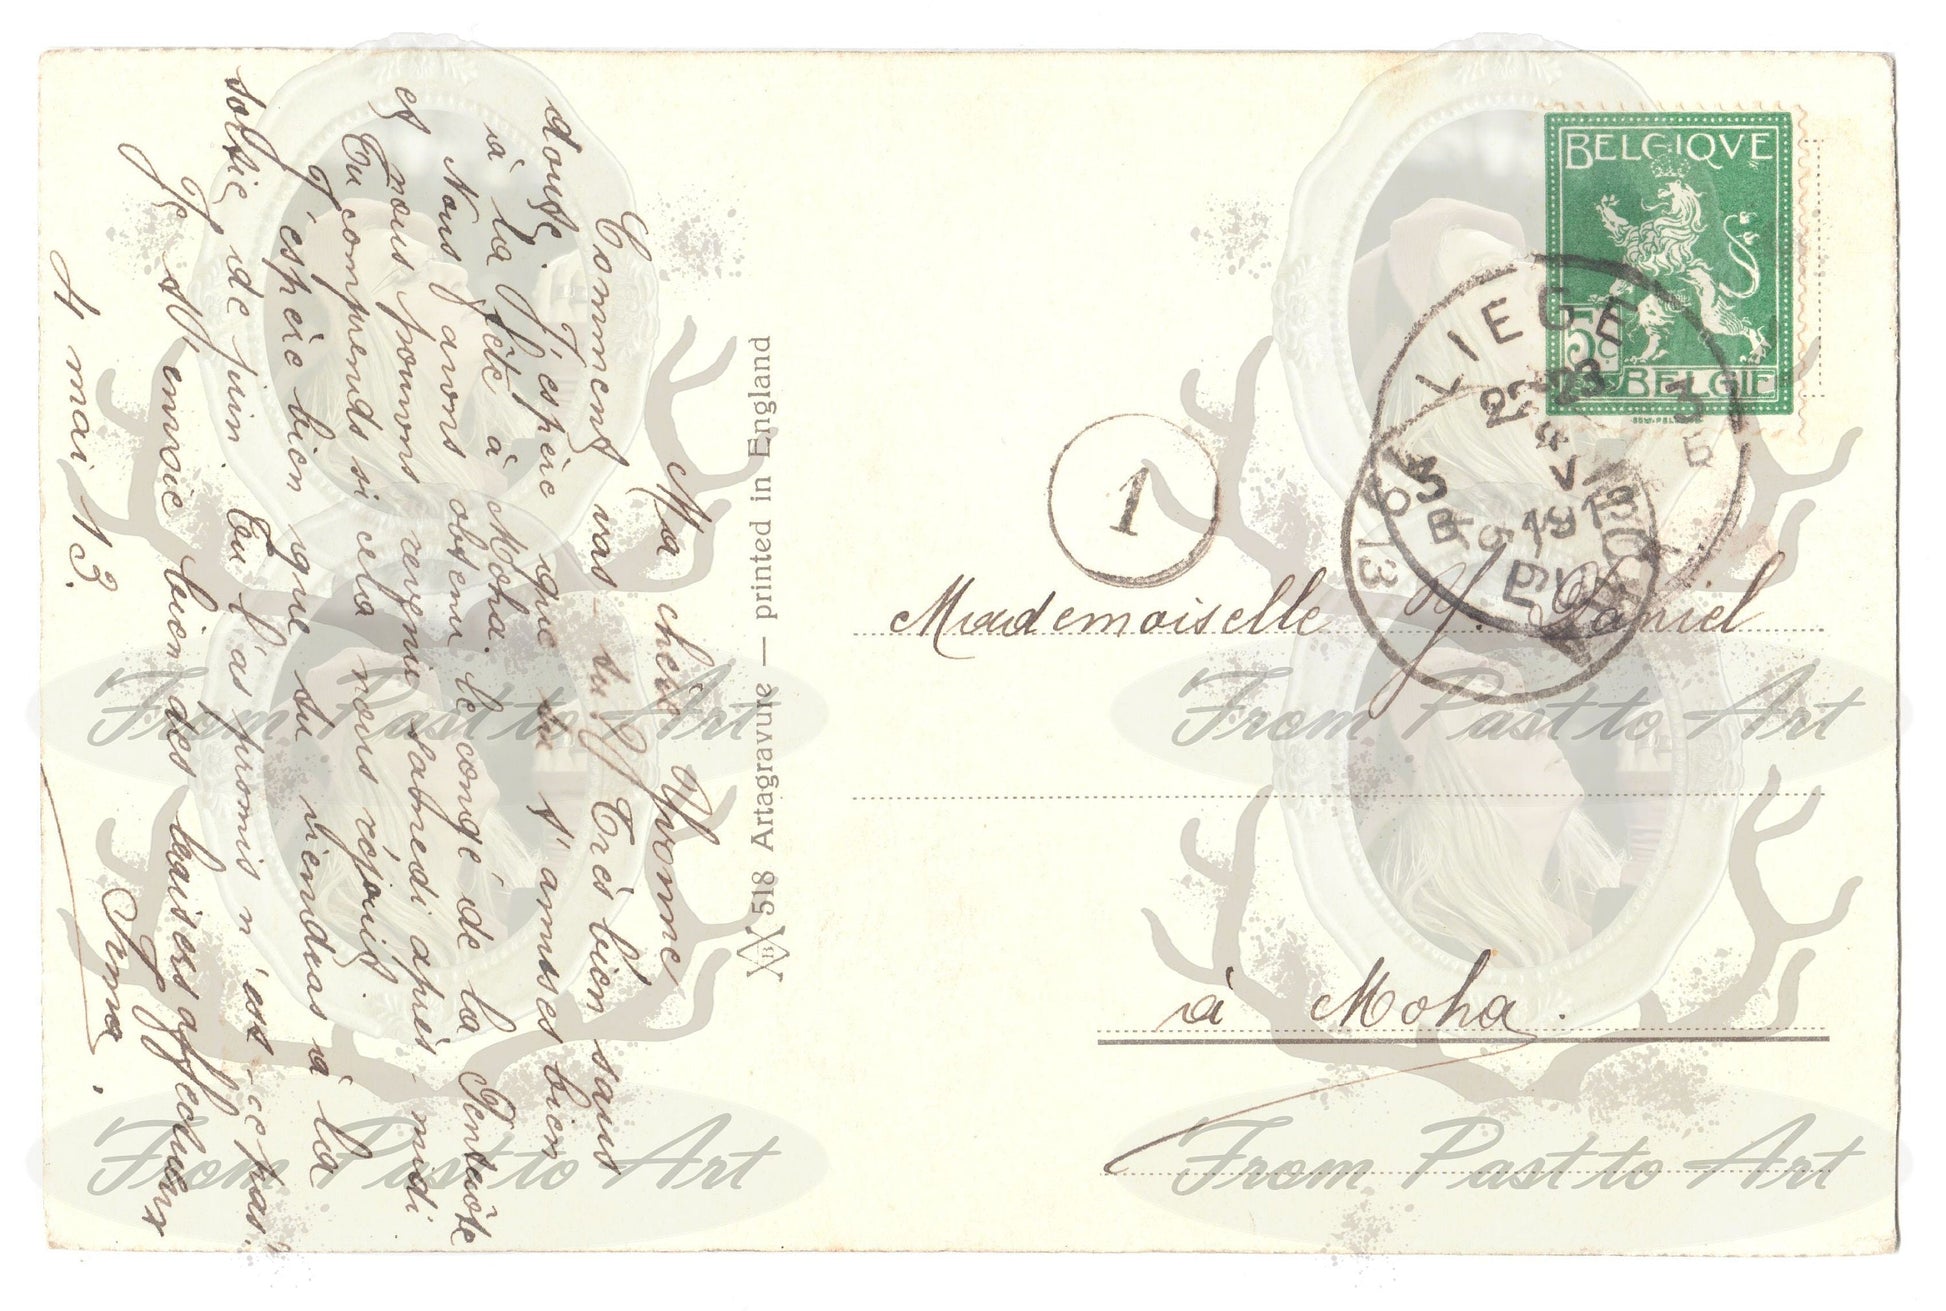 Ma chère Yvonne
Comment vas-tu? Très bien sans
doute. J'espère que tu t'amuses bien
à la fête à Moha.
Nous avons obtenu le congé de la Pentecôte
et nous pouvons revenir samedi après-midi
Tu comprends si cela nous réjouit
J'espère bien que tu viendras à la
sortie de juin Tu l'as promis n'est-ce pas?
Je t'envoie bien des baisers affectueux
Irma.
4 mai 13.
518 Artagravure — printed in England
BELGIQVE
5c
BELGIE
LIEGE
22-23
V
191
3
B
3
B
1
13
Mademoiselle Y. Daniel
à Moha.
From Past to Art
From Past to Art
From Past to Art
From Past to Art